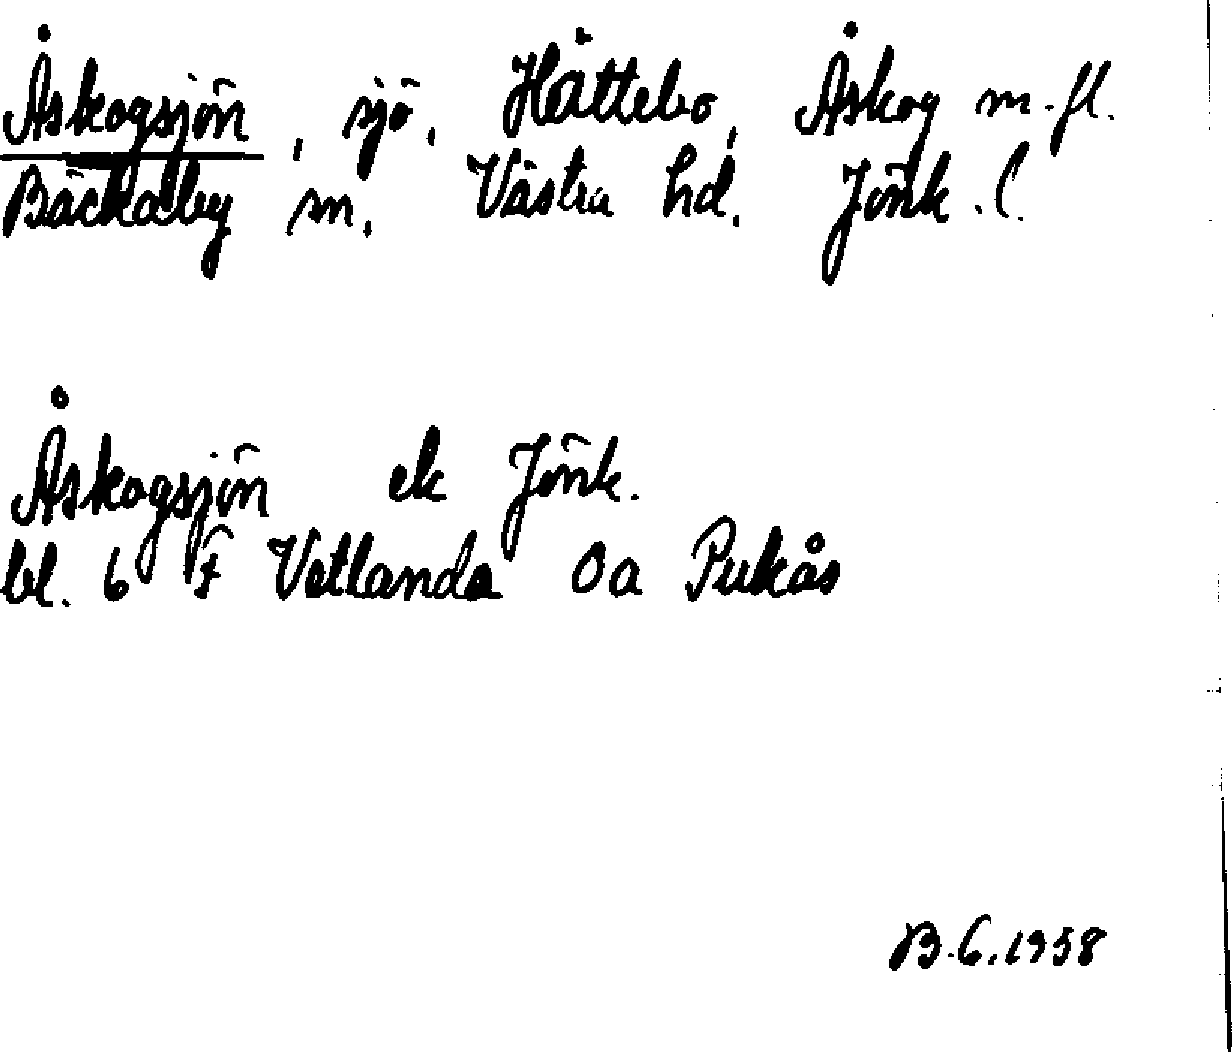 Åskogsjön, sjö, Hättebo, Åskog m.fl.
Bäckaby sn. Västra hd. Jönk.l.
Åskogsjön ek Jönk.
bl. 6 F Vetlanda 0a Pukås
B.G.1958